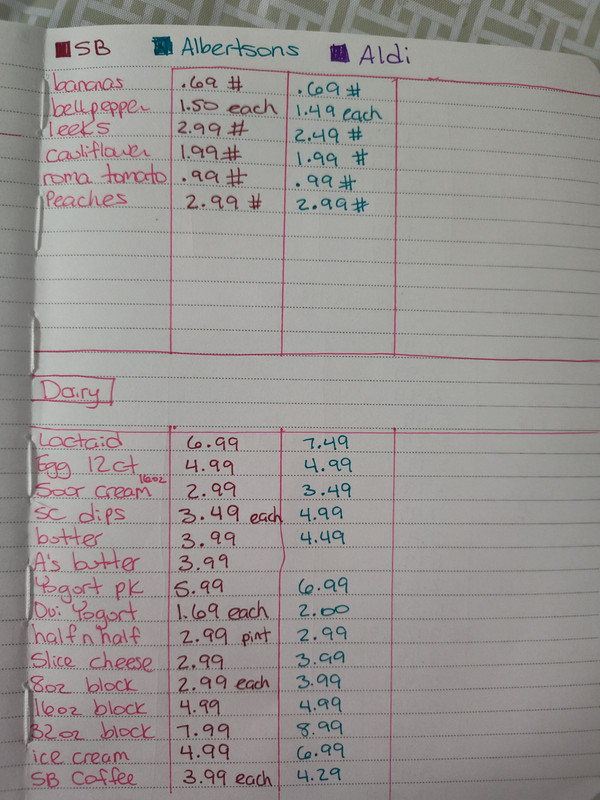 SB Albertsons Aldi
bananas .69 # .69 #
bellpepper 1.50 each 1.49 each
leeks 2.99 # 2.49 #
cauliflower 1.99 # 1.99 #
roma tomato .99 # .99 #
Peaches 2.99 # 2.99 #
Dairy
Lactaid 6.99 7.49
Egg 12ct 4.99 4.99
Sour cream 16oz 2.99 3.49
SC dips 3.49 each 4.99
butter 3.99 4.49
A's butter 3.99
Yogort pk 5.99 6.99
Yogort 1.69 each 2.00
half n half 2.99 pint 2.99
Slice cheese 2.99 3.99
8oz block 2.99 each 3.99
16oz block 4.99 4.99
32oz block 7.99 8.99
ice cream 4.99 6.99
SB Coffee 3.99 each 4.29